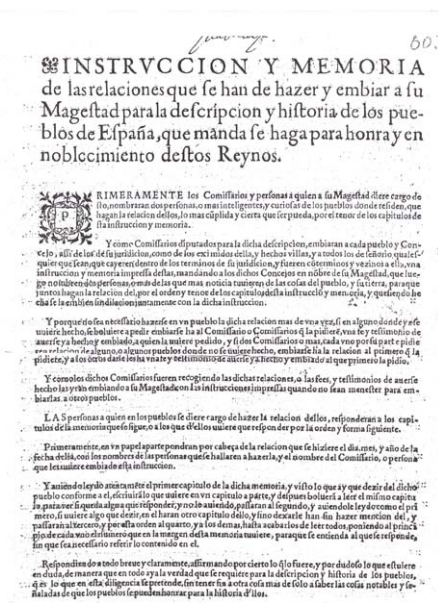 603
INSTRVCCION Y MEMORIA
de las relaciones que se han de hazer y embiar a su
Magestad para la descripcion y historia de los pue-
blos de España, que manda se haga para honra y en
noblecimiento destos Reynos.
PRIMERAMENTE los Comissarios y personas a quien a su Magestad diere cargo de
sto, nombraran dos personas, o mas inteligentes, y curiosas de los pueblos donde residen, que
hagan la relacion dellos, lo mas cūplida y cierta que ser pueda, por el tenor de los capitulos de
sta instruccion y memoria.
Y como Comissarios diputados para la dicha descripcion, embiaran a cada pueblo y Con-
cejo, assi de los de su juridicion, como de los eximidos della, y hechos villas, y a todos los de señorio, quales-
quier que sean, que cayeren dentro de los terminos de su juridicion, y fueren cōtermincs y vezinos a ella, vna
instruccion y memoria impressa destas, mandando a los dichos Concejos en nōbre de su Magestad, que lue-
go nōbren dos personas, o mas de las que mas noticia tuvieren de las cosas del pueblo, y su tierra, para que
juntos hagan la relacion del, por el orden y tenor de los capitulos desta instrucciō y memoria, y
cha se la embien sin dilacion juntamente con la dicha instruccion.
Y porque no sea necessario hazerse en vn pueblo la dicha relacion mas de vna vez, si en alguno donde y a se
uuiere hecho, se boluiere a pedir embiarse ha al Comissario o Comissarios q̄ la pidierē, vna fe y testimonio de
auerse ya hecho y embiado, a quien la uuiere pedido, y si dos Comissarios o mas, cada vno por su parte pidie
ren relacion de alguno, o algunos pueblos donde no se uuiere hecho, embiarse ha la relacion al primero q̄ la
pidiere, y a los otros darseles ha vna fe y testimonio de auerse ya hecho y embiado al que primero la pidio.
Y como los dichos Comissarios fueren recogiendo las dichas relaciones, o las fees, y testimonios de auerse
hecho las yran embiando a su Magestad con las instrucciones impressas quando no sean menester para em-
biarlas a otros pueblos.
LAS personas a quien en los pueblos se diere cargo de hazer la relacion dellos, responderan a los capi-
tulos de la memoria que se sigue, o a los que d'ellos uuiere que responder por la orden y forma siguiente.
Primeramente, en vn papel aparte pondran por cabeça de la relacion que se hiziere el dia, mes, y año de la
fecha della, cōn los nombres de las personas que se hallaren a hazerla, y el nombre del Comissario, o persona
que les uuiere embiado esta instruccion.
Y auiendo leydo atentamēte el primer capitulo de la dicha memoria, y visto lo que ay que dezir del dicho
pueblo conforme a el, escriuirā lo que uuiere en vn capitulo a parte, y despues bolueran a leer el mismo capitu
lo, para ver si queda algna que responder, y no lo auiendo, passaran al segundo, y auiendole leydo como el pri
mero, si uuiere algo que dezir, en el haran otro capitulo dello, y sino dexarle han sin hazer mencion del, y
passaran al tercero, y por esta orden al quarto, y a los demas, hasta acabarlos de leer todos, poniendo al princi
pio de cada vno el numero que en la margen desta memoria tuuiere, para que se entienda al que se responde,
sin que sea necessario referir lo contenido en el.
Respondiendo a todo breue y claramente, affirmando por cierto lo q̄ lo fuere, y por dudoso lo que estuuiere
en duda, de manera que en todo aya la verdad que se requiere para la descripcion y historia de los pueblos,
q̄ es lo que en esta diligencia se pretende, sin tener fin a otra cosa mas de solo a saber las cosas notables y se-
ñaladas de que los pueblos se pueden honrar para la historia d'llos.